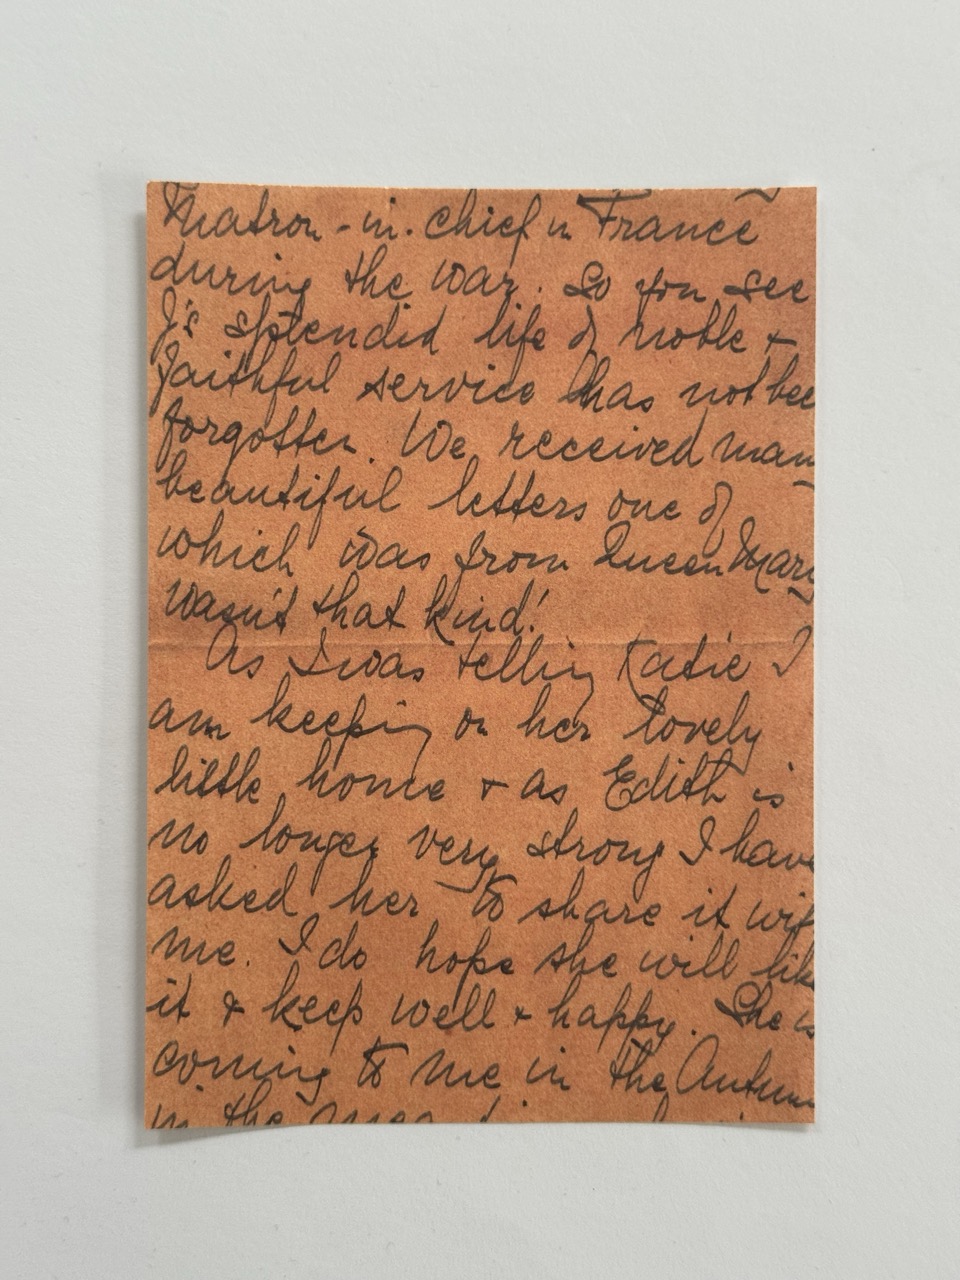 Matron-in-chief in France
during the war. So you see
J's splendid life of noble +
faithful service has not bee
forgotten. We received man
beautiful letters one of
which was from Queen Mary
wasn't that kind!
As I was telling Katie I
am keeping on her lovely
little home + as Edith is
no longer very strong I have
asked her to share it wit
me. I do hope she will lik
it & keep well + happy. She is
coming to me in the Autum
in the